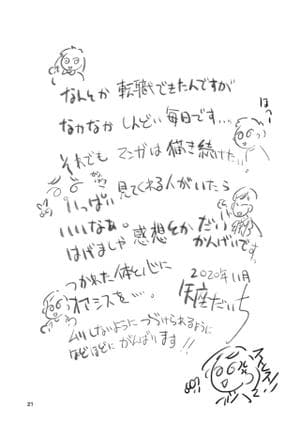 なんとか 転職できたんですが
なかなか しんどい 毎日です…
はっ
それでも マンガは描き続けたい!
いっぱい 見てくれる人がいたら
いいなぁ。
はげましや 感想とか だい
かんげいです。
つかれた体と心に
オアシスを…。
2020年11月
座だいち
ムリしないように つづけられるように
ほどほどに がんばります!!
21